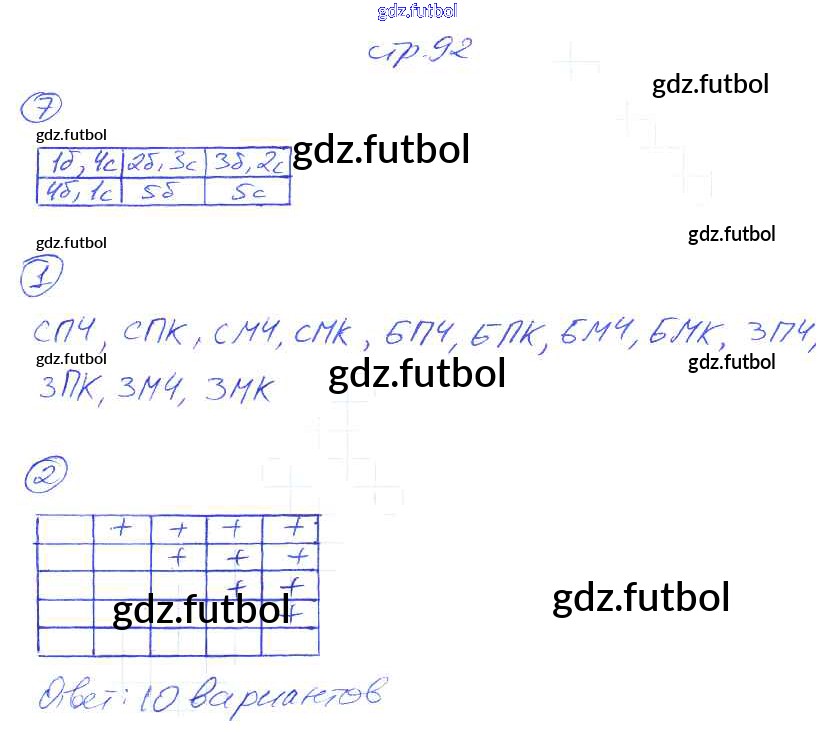 gdz.futbol
стр.92
gdz.futbol
7
gdz.futbol
gdz.futbol
1б, 4с 2б, 3с 3б, 2с
4б, 1с 5б 5с
gdz.futbol
gdz.futbol
1
СПЧ, СПК, СМЧ, СМК, БПЧ, БПК, БМЧ, БМК, ЗПЧ,
gdz.futbol
gdz.futbol
gdz.futbol
ЗПК, ЗМЧ, ЗМК
2
+ + + +
+ + +
+ +
+
gdz.futbol
gdz.futbol
Ответ: 10 вариантов